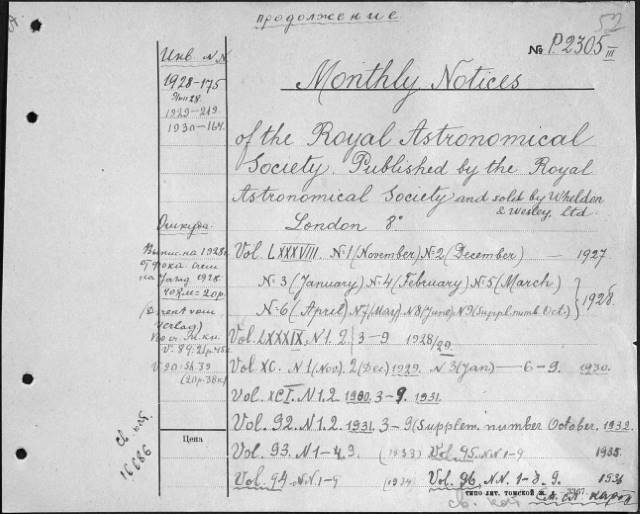 продолжение
52
№ P.2305 III
Инв. NN
1928-175
1929-219.
1930-164.
Monthly Notices
of the Royal Astronomical
Society. Published by the Royal
Astronomical Society and sold by Wheldon
& Wesley, Ltd.
London 8°
Откуда:
Выпис. на 1928г.
(Direnct vom
Verlag)
Vol. LXXXVIII N-1 (November) N-2 (December) — 1927
N-3 (January) N-4 (February) N-5 (March)
N-6 (April) N7 (May) N8 (June) N9 (Supplem. numb. Oct.) } 1928.
Vol. LXXXIX, N1. 2 3-9 1928/29.
Vol XC. N1 (Nov). 2 (Dec) 1929. N3 (Jan) — 6-9. 1930.
Vol. XCI. N1.2 1930. 3-9. 1931.
Vol. 92. N.1.2. 1931. 3-9 (Supplem. number October. 1932.
Vol. 93. N1-4.9. (1933) Vol. 95. N.N. 1-9 1935.
Vol. 94. N.N. 1-9 (1934) Vol. 96, N.N. 1-8. 9. 1936
Цена
св. кат.
16686
ТИПО ЛИТ. ТОМСКОЙ Ж.
св. кат